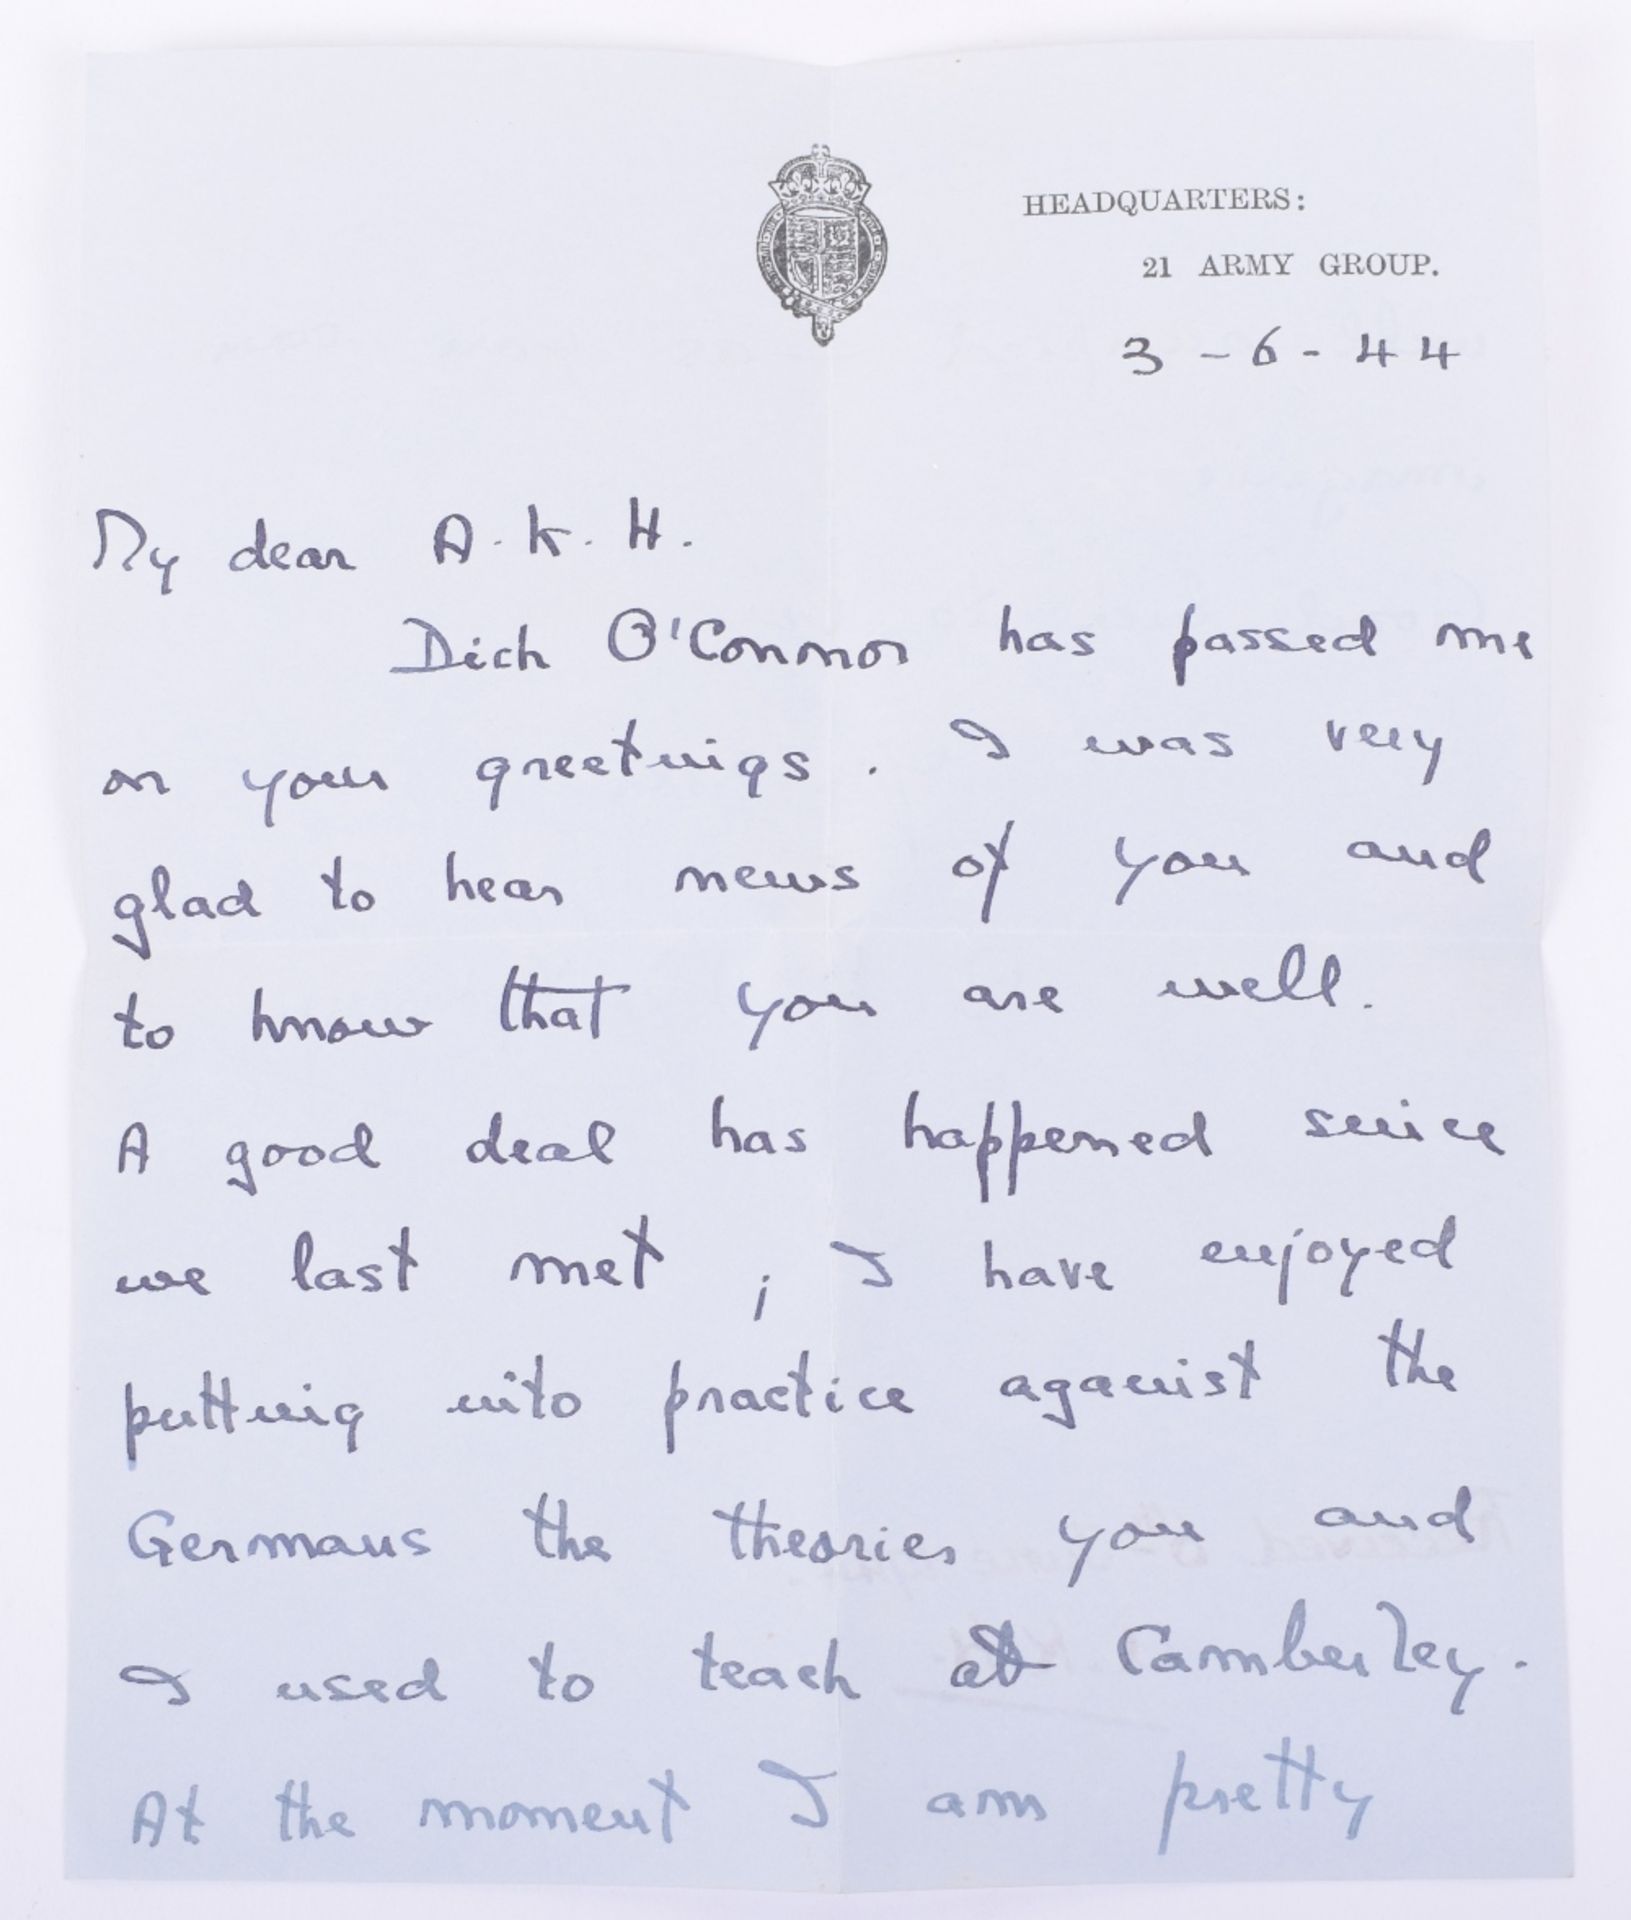 HEADQUARTERS:
21 ARMY GROUP.
3 - 6 - 44
My dear A. K. H.
Dick O'Connor has passed me
on your greetings. I was very
glad to hear news of you and
to know that you are well.
A good deal has happened since
we last met ; I have enjoyed
putting into practice against the
Germans the theories you and
I used to teach at Camberley.
At the moment I am pretty